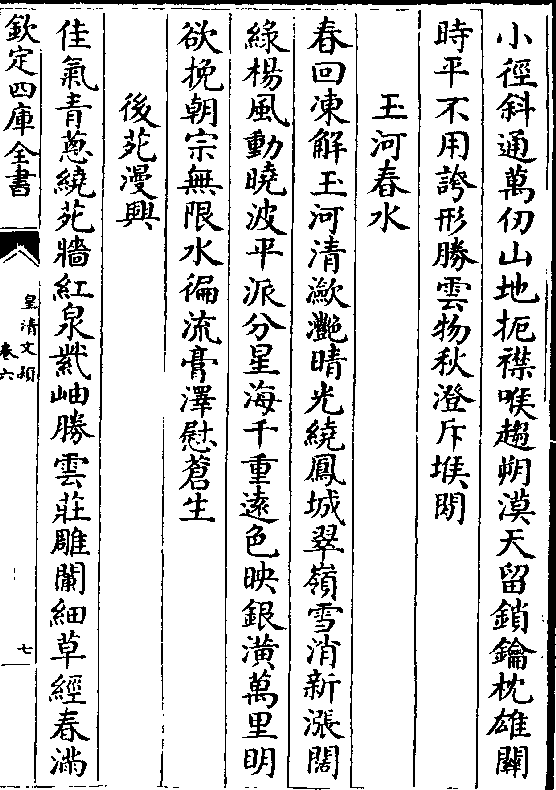 小徑斜通萬仞山地扼襟喉趨朔漠天留鎖鑰枕雄關
時平不用誇形勝雲物秋澄斥堠閒
玉河春水
春回凍解玉河清瀲灧晴光繞鳳城翠嶺雪消新漲闊
綠楊風動曉波平派分星海千重遠色映銀潢萬里明
欲挽朝宗無限水徧流膏澤慰蒼生
後苑漫興
佳氣青蔥繞苑牆紅泉紫岫勝雲莊雕闌細草經春滿
欽定四庫全書
皇清文穎
卷六
七